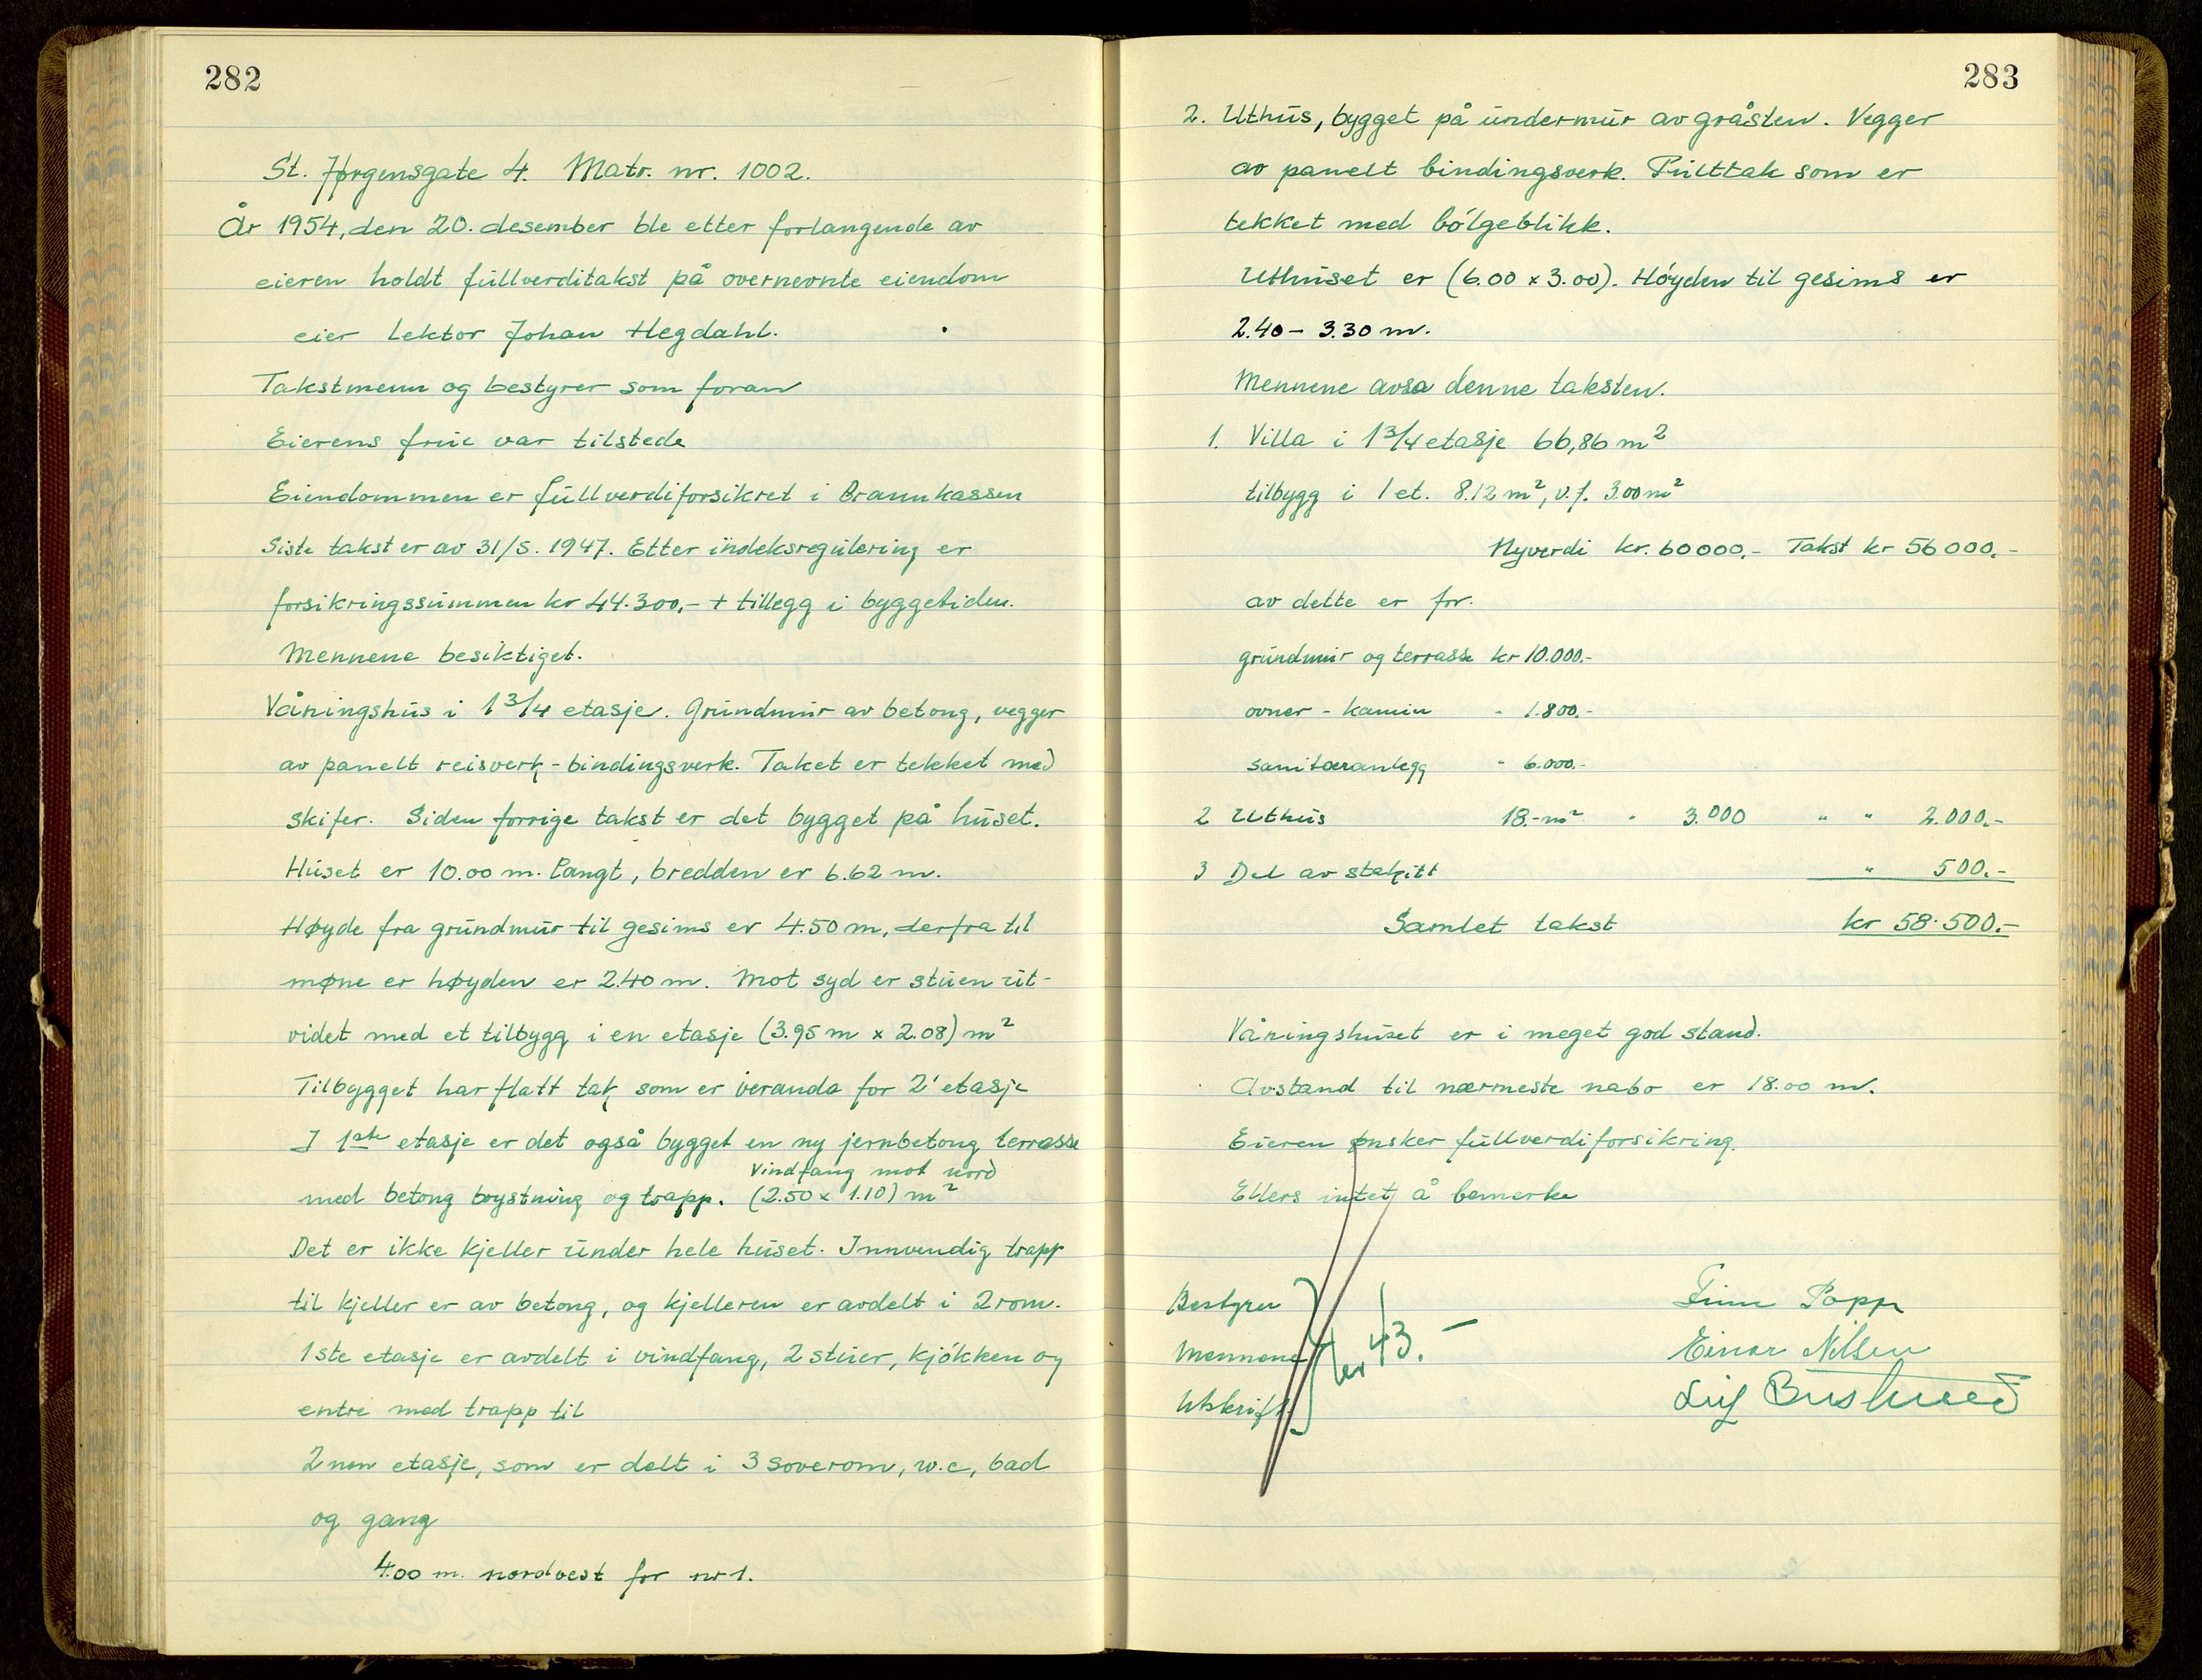 282
St. Jørgensgate 4. Matr. nr. 1002.
År 1954, den 20. desember ble etter forlangende av
eieren holdt fullverditakst på overnevnte eiendom
eier Lektor Johan Hegdahl.
Takstmenn og bestyrer som foran
Eierens frue var tilstede
Eiendommen er fullverdiforsikret i Brannkassen
Siste takst er av 31/5. 1947. Etter indeksregulering er
forsikringssummen kr 44.300,- + tillegg i byggetiden.
Mennene besiktiget.
Våningshus i 1 3/4 etasje. Grundmur av betong, vegger
av panelt reisverk-bindingsverk. Taket er tekket med
skifer. Siden forrige takst er det bygget på huset.
Huset er 10.00 m. langt, bredden er 6.62 m.
Høyde fra grundmur til gesims er 4.50 m, derfra til
møne er høyden er 2.40 m. Mot syd er stuen ut-
videt med et tilbygg i en etasje (3.95 m x 2.08) m²
Tilbygget har flatt tak som er veranda for 2' etasje
I 1ste etasje er det også bygget en ny jernbetong terrasse
Vindfang mot nord
med betong brystning og trapp. (2.50 x 1.10) m²
Det er ikke kjeller under hele huset. Innvendig trapp
til kjeller er av betong, og kjelleren er avdelt i 2 rom.
1ste etasje er avdelt i vindfang, 2 stuer, kjökken og
entre med trapp til
2nen etasje, som er delt i 3 soverom, w.c, bad
og gang
4.00 m. nordvest for nr 1.
283
2. Uthus, bygget på undermur av gråsten. Vegger
av panelt bindingsverk. Pulttak som er
tekket med bölgeblikk.
Uthuset er (6.00 x 3.00). Høyden til gesims er
2.40 - 3.30 m.
Mennene avsa denne taksten.
1. Villa i 1 3/4 etasje 66,86 m²
tilbygg i 1 et. 8.12 m², v.f. 3.00 m²
Nyverdi kr. 60000.- Takst kr 56000.-
av dette er for.
grundmur og terrasse kr 10.000.-
ovner - kamin " 1.800.-
sanitæranlegg " 6.000.-
2 Uthus 18.- m² " 3.000 " " 2.000.-
3 Del av stakitt " 500.-
Samlet takst kr 58.500.-
Våningshuset er i meget god stand.
Avstand til nærmeste nabo er 18.00 m.
Eieren ønsker fullverdiforsikring.
Ellers intet å bemerke
Bestyrer Finn Popp
Mennene kr 43.- Einar Nilsen
Utskrift Leif Buslund